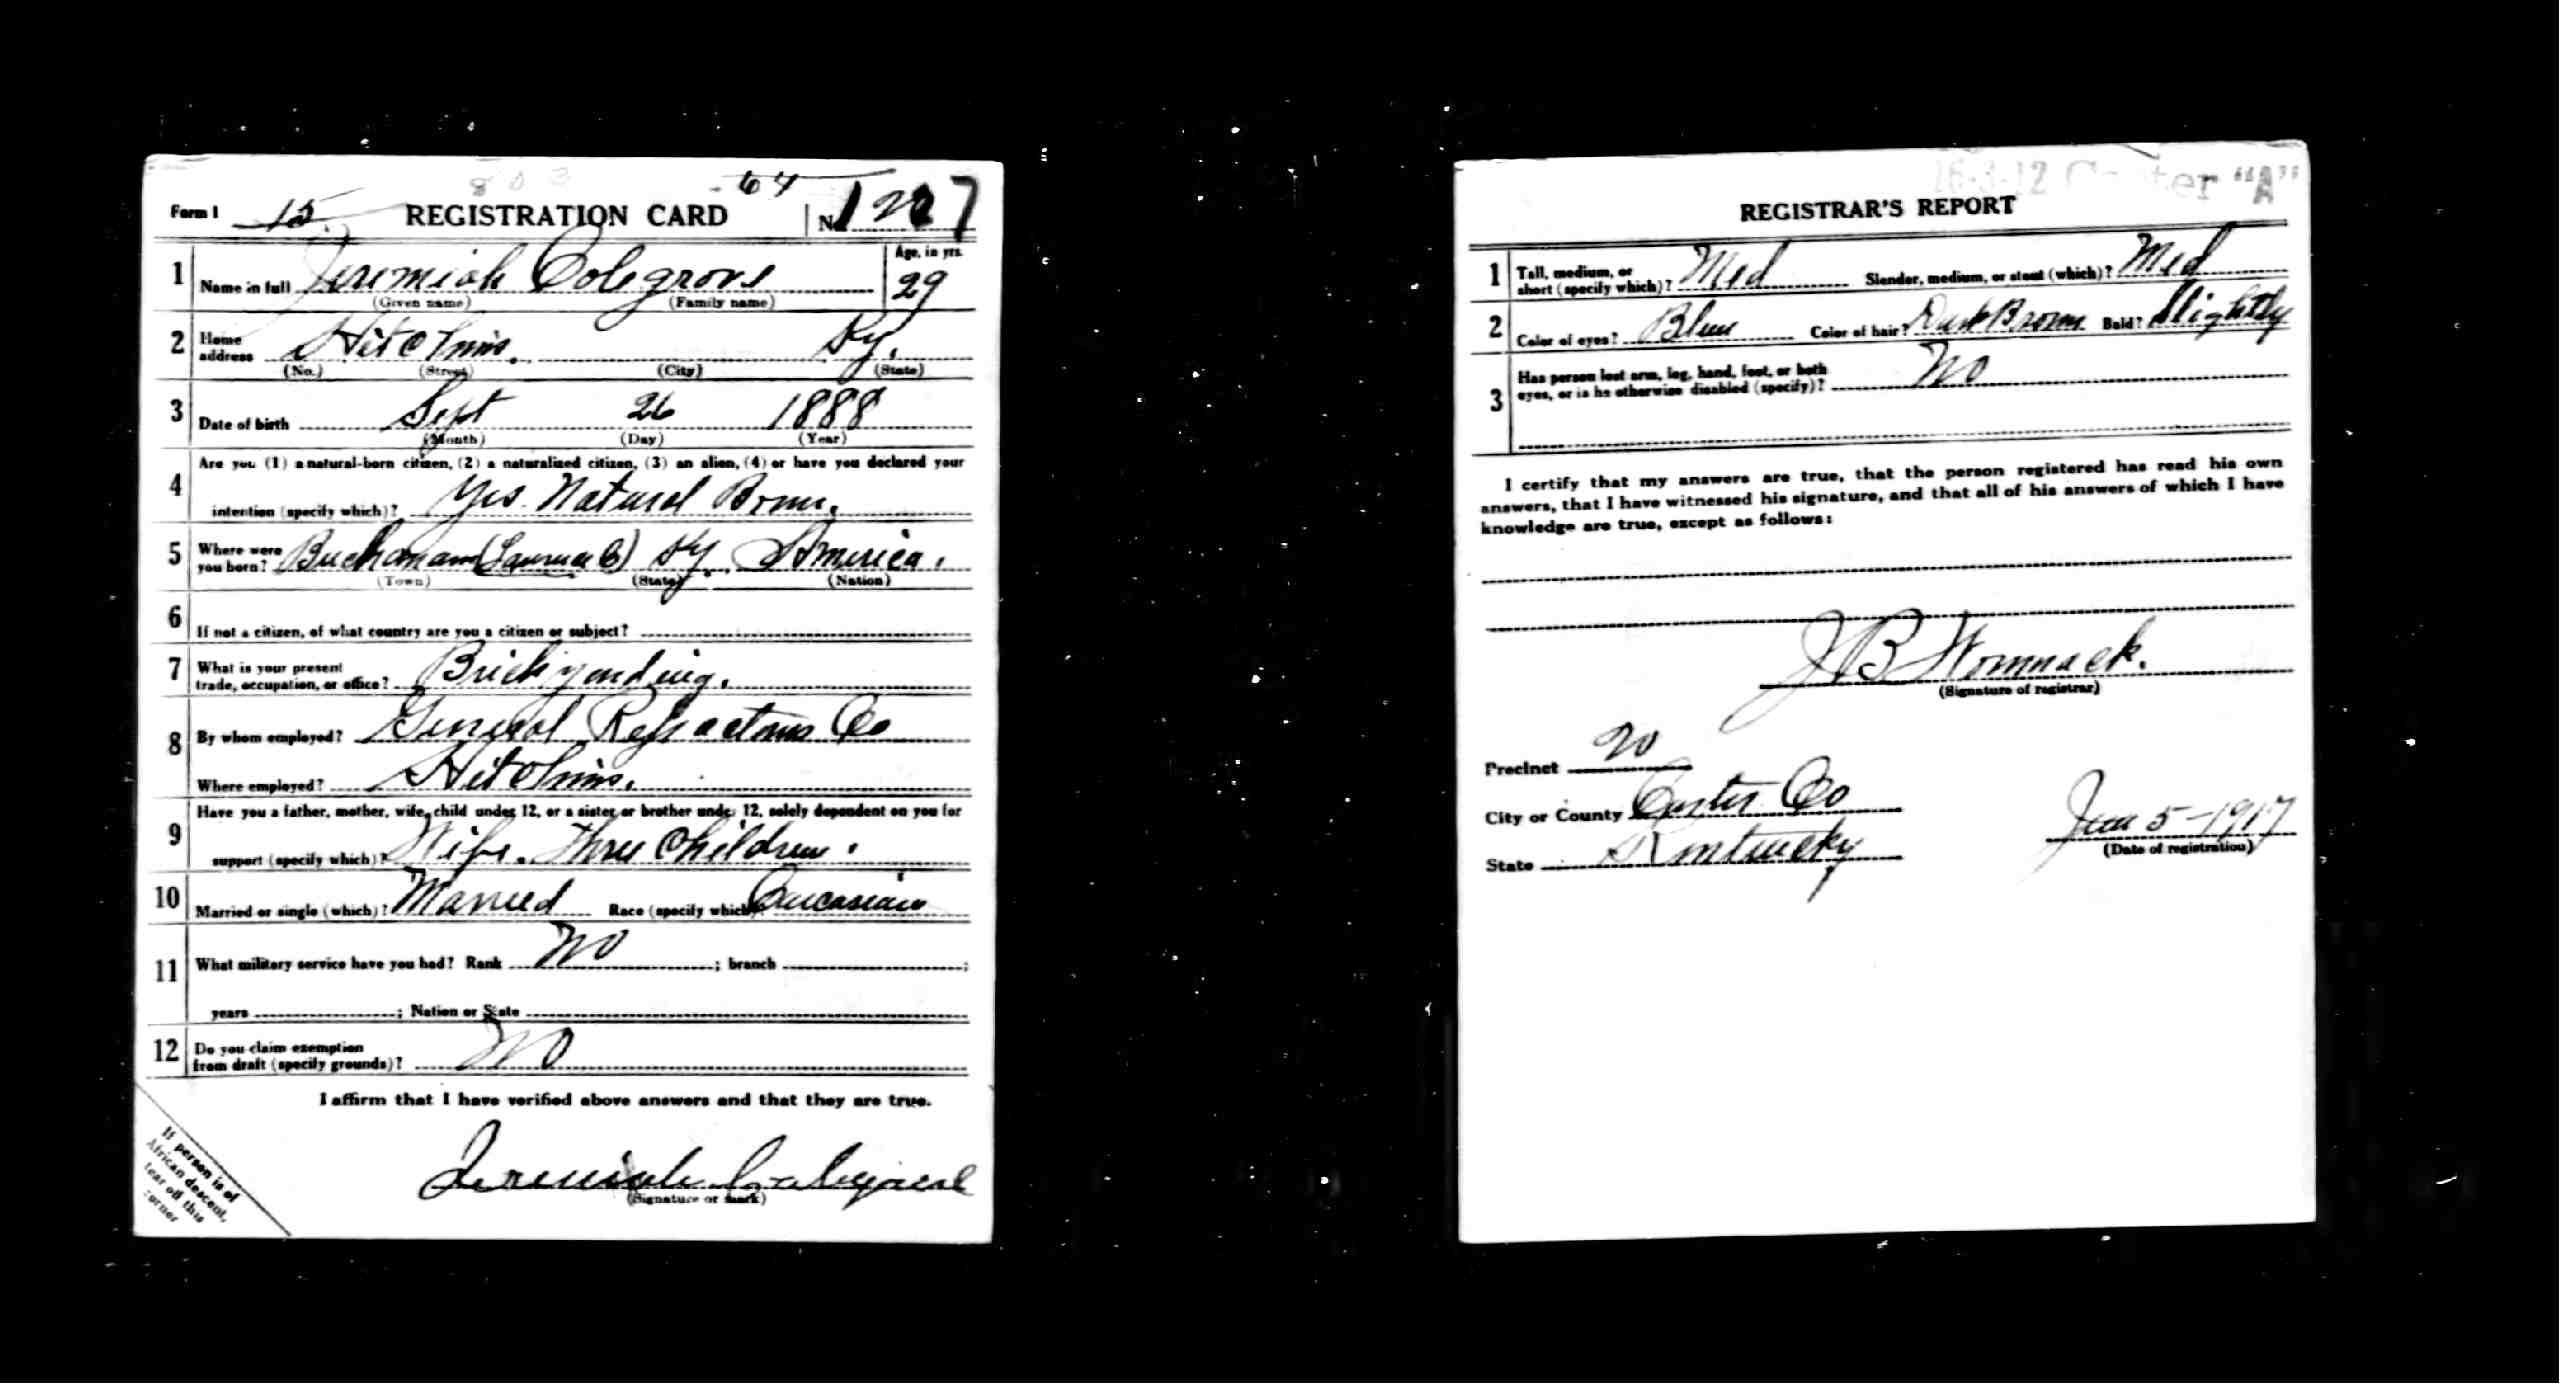 803
64
Form 1 15 REGISTRATION CARD No. 1227
1 Name in full Jeremiah Colegrove Age, in yrs. 29
(Given name) (Family name)
2 Home address Hitchins. Ky.
(No.) (Street) (City) (State)
3 Date of birth Sept 26 1888
(Month) (Day) (Year)
4 Are you (1) a natural-born citizen, (2) a naturalized citizen, (3) an alien, (4) or have you declared your
intention (specify which)? Yes. Natural Born.
5 Where were you born? Buchanan (Lawrence Co) Ky. America.
(Town) (State) (Nation)
6 If not a citizen, of what country are you a citizen or subject?
7 What is your present trade, occupation, or office? Brickyarding.
8 By whom employed? General Refractories Co
Where employed? Hitchins.
9 Have you a father, mother, wife, child under 12, or a sister or brother under 12, solely dependent on you for
support (specify which)? Wife. Three Children.
10 Married or single (which)? Married Race (specify which)? Caucasian
11 What military service have you had? Rank No ; branch ;
years ; Nation or State
12 Do you claim exemption from draft (specify grounds)? No
I affirm that I have verified above answers and that they are true.
Jeremiah Colegrove
(Signature or mark)
If person is of
African descent,
tear off this
corner
16-3-12 Carter "A"
REGISTRAR'S REPORT
1 Tall, medium, or short (specify which)? Med Slender, medium, or stout (which)? Med
2 Color of eyes? Blue Color of hair? Dark Brown Bald? Slightly
3 Has person lost arm, leg, hand, foot, or both
eyes, or is he otherwise disabled (specify)? No
I certify that my answers are true, that the person registered has read his own
answers, that I have witnessed his signature, and that all of his answers of which I have
knowledge are true, except as follows:
J B Womack.
(Signature of registrar)
Precinct 20
City or County Carter Co
State Kentucky
June 5-1917
(Date of registration)